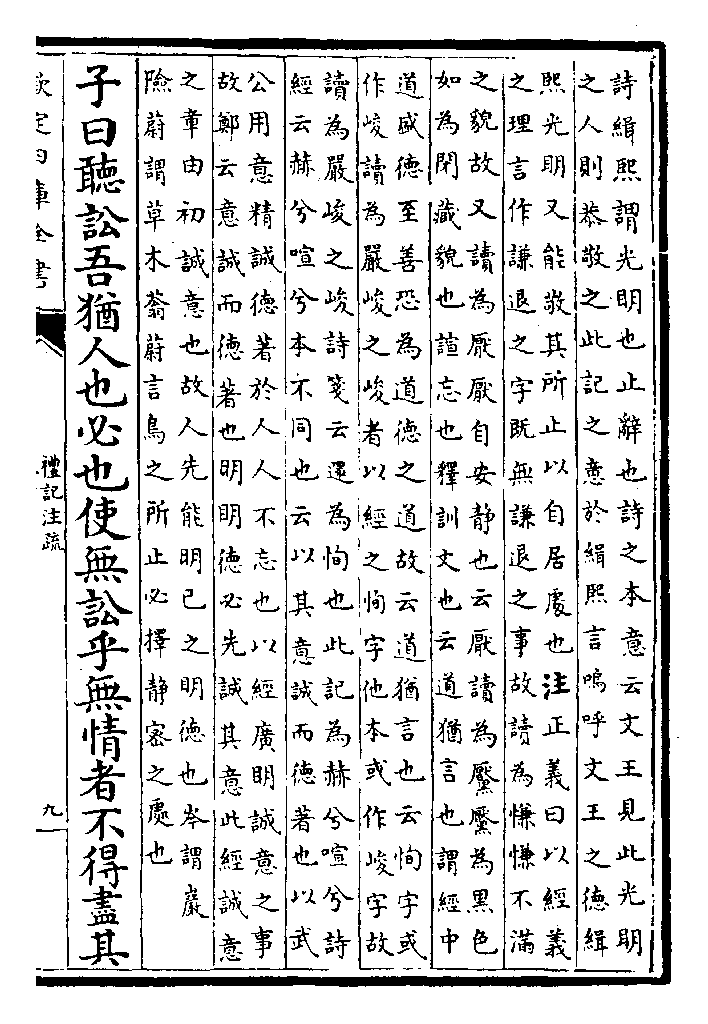 詩緝熙謂光明也止辭也詩之本意云文王見此光明
之人則恭敬之此記之意於緝熙言嗚呼文王之德緝
熙光明又能敬其所止以自居處也注正義曰以經義
之理言作謙退之字既無謙退之事故讀為慊慊不滿
之貌故又讀為厭厭自安靜也云厭讀為黶黶為黑色
如為閉藏貌也諠忘也釋訓文也云道猶言也謂經中
道盛德至善恐為道德之道故云道猶言也云恂字或
作峻讀為嚴峻之峻者以經之恂字他本或作峻字故
讀為嚴峻之峻詩箋云還為恂也此記為赫兮喧兮詩
經云赫兮喧兮本不同也云以其意誠而德著也以武
公用意精誠德著於人人不忘也以經廣明誠意之事
故鄭云意誠而德著也明明德必先誠其意此經誠意
之章由初誠意也故人先能明己之明德也岑謂巖
險蔚謂草木蓊蔚言鳥之所止必擇靜密之處也
子曰聽訟吾猶人也必也使無訟乎無情者不得盡其
欽定四庫全書
禮記注疏
九